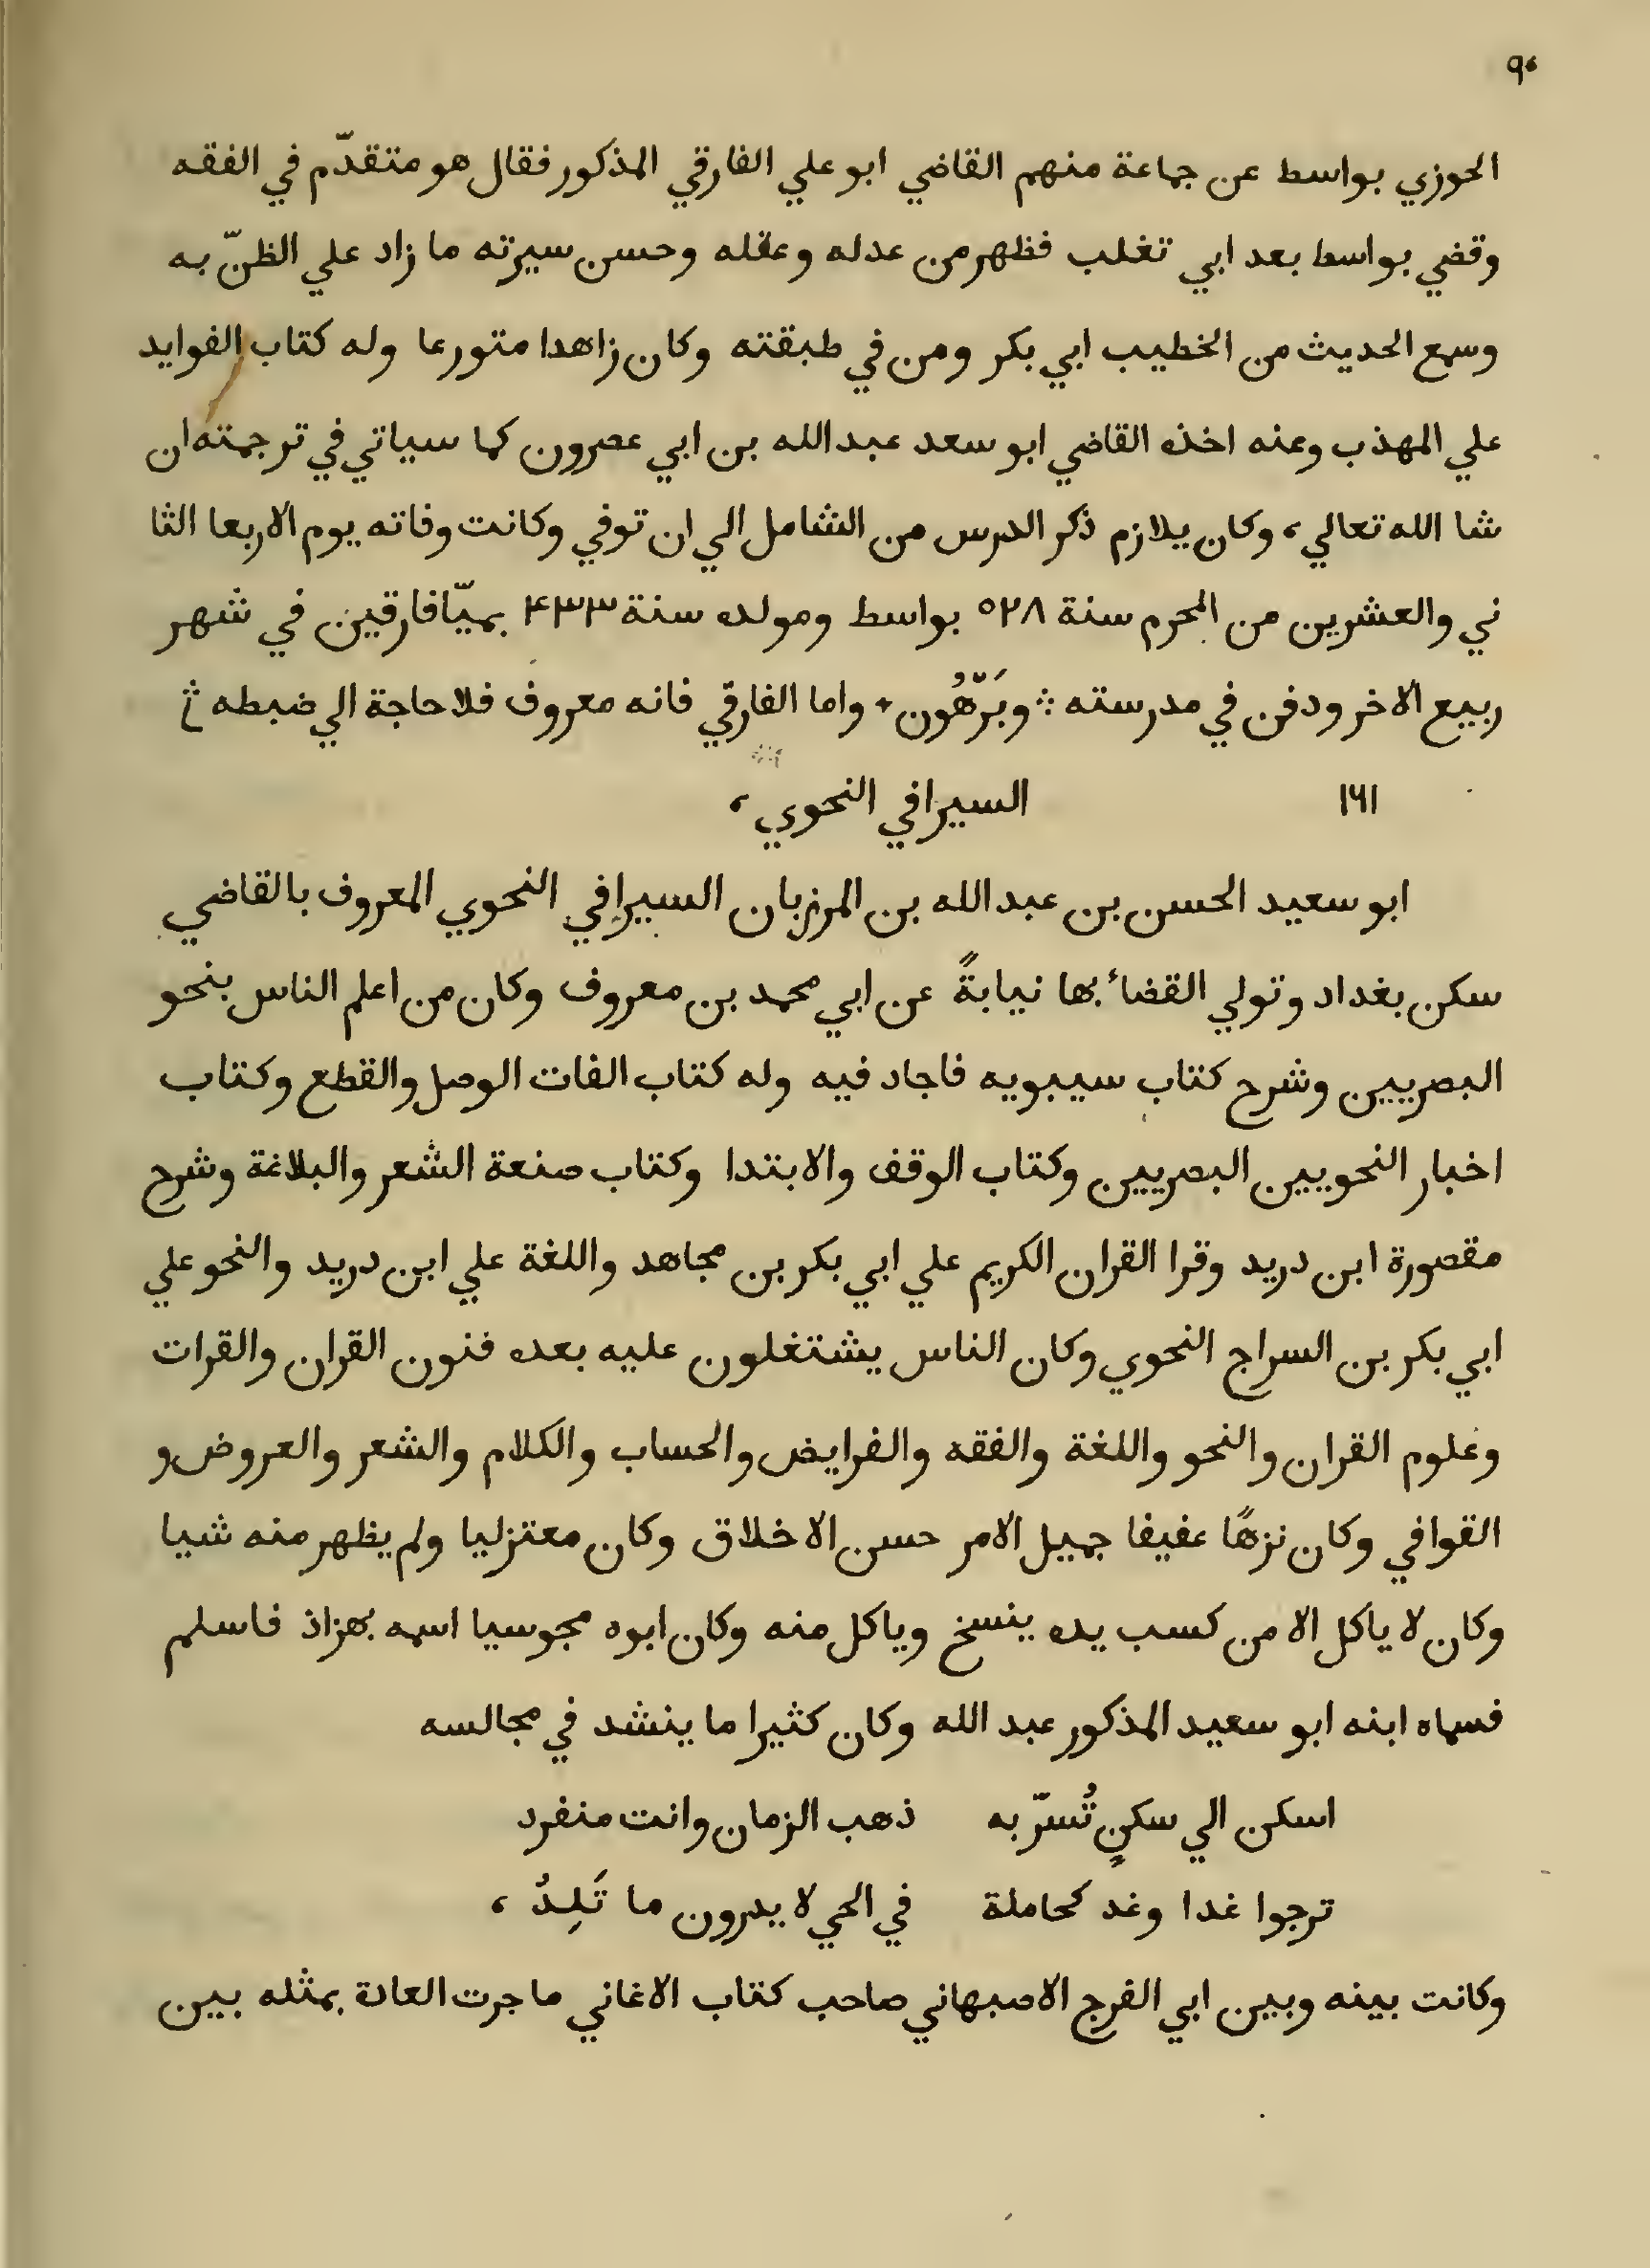 ٩٠
الحوزي بواسط عن جماعة منهم القاضي ابو علي الفارقي المذكور فقال هو متقدّم في الفقه
وقضي بواسط بعد ابي تغلب فظهر من عدله وعقله وحسن سيرته ما زاد علي الظنّ به
وسمع الحديث من الخطيب ابي بكر ومن في طبقته وكان زاهدا متورعا وله كتاب الفوايد
علي المهذب وعنه اخذه القاضي ابو سعد عبد الله بن ابي عصرون كما سياتي في ترجمته ان
شا الله تعالي، وكان يلازم ذكر الدرس من الشامل الي ان توفي وكانت وفاته يوم الاربعا الثا
ني والعشرين من المحرم سنة ٥٢٨ بواسط ومولده سنة ۴۳۳ بميّافارقين في شهر
ربيع الاخر ودفن في مدرسته ؞ وبَرّهُون + واما الفارقي فانه معروف فلا حاجة الي ضبطه
١٦١ السيرافي النحوي،
ابو سعيد الحسن بن عبد الله بن المرزبان السيرافي النحوي المعروف بالقاضي
سكن بغداد وتولي القضاء بها نيابةً عن ابي محمد بن معروف وكان من اعلم الناس بنحو
البصريين وشرح كتاب سيبويه فاجاد فيه وله كتاب الفات الوصل والقطع وكتاب
اخبار النحويين البصريين وكتاب الوقف والابتدا وكتاب صنعة الشعر والبلاغة وشرح
مقصورة ابن دريد وقرا القران الكريم علي ابي بكر بن مجاهد واللغة علي ابن دريد والنحو علي
ابي بكر بن السراج النحوي وكان الناس يشتغلون عليه بعده فنون القران والقرات
وعلوم القران والنحو واللغة والفقه والفرايض والحساب والكلام والشعر والعروض و
القوافي وكان نزهًا عفيفا جميل الامر حسن الاخلاق وكان معتزليا ولم يظهر منه شيا
وكان لا ياكل الا من كسب يده ينسخ وياكل منه وكان ابوه مجوسيا اسمه بهزاذ فاسلم
فسماه ابنه ابو سعيد المذكور عبد الله وكان كثيرا ما ينشد في مجالسه
اسكن الي سكنٍ تُسرّ به ذهب الزمان وانت منفرد
ترجوا غدا وغد كحاملة في الحي لا يدرون ما تَلِدُ،
وكانت بينه وبين ابي الفرج الاصبهاني صاحب كتاب الاغاني ما جرت العادة بمثله بين